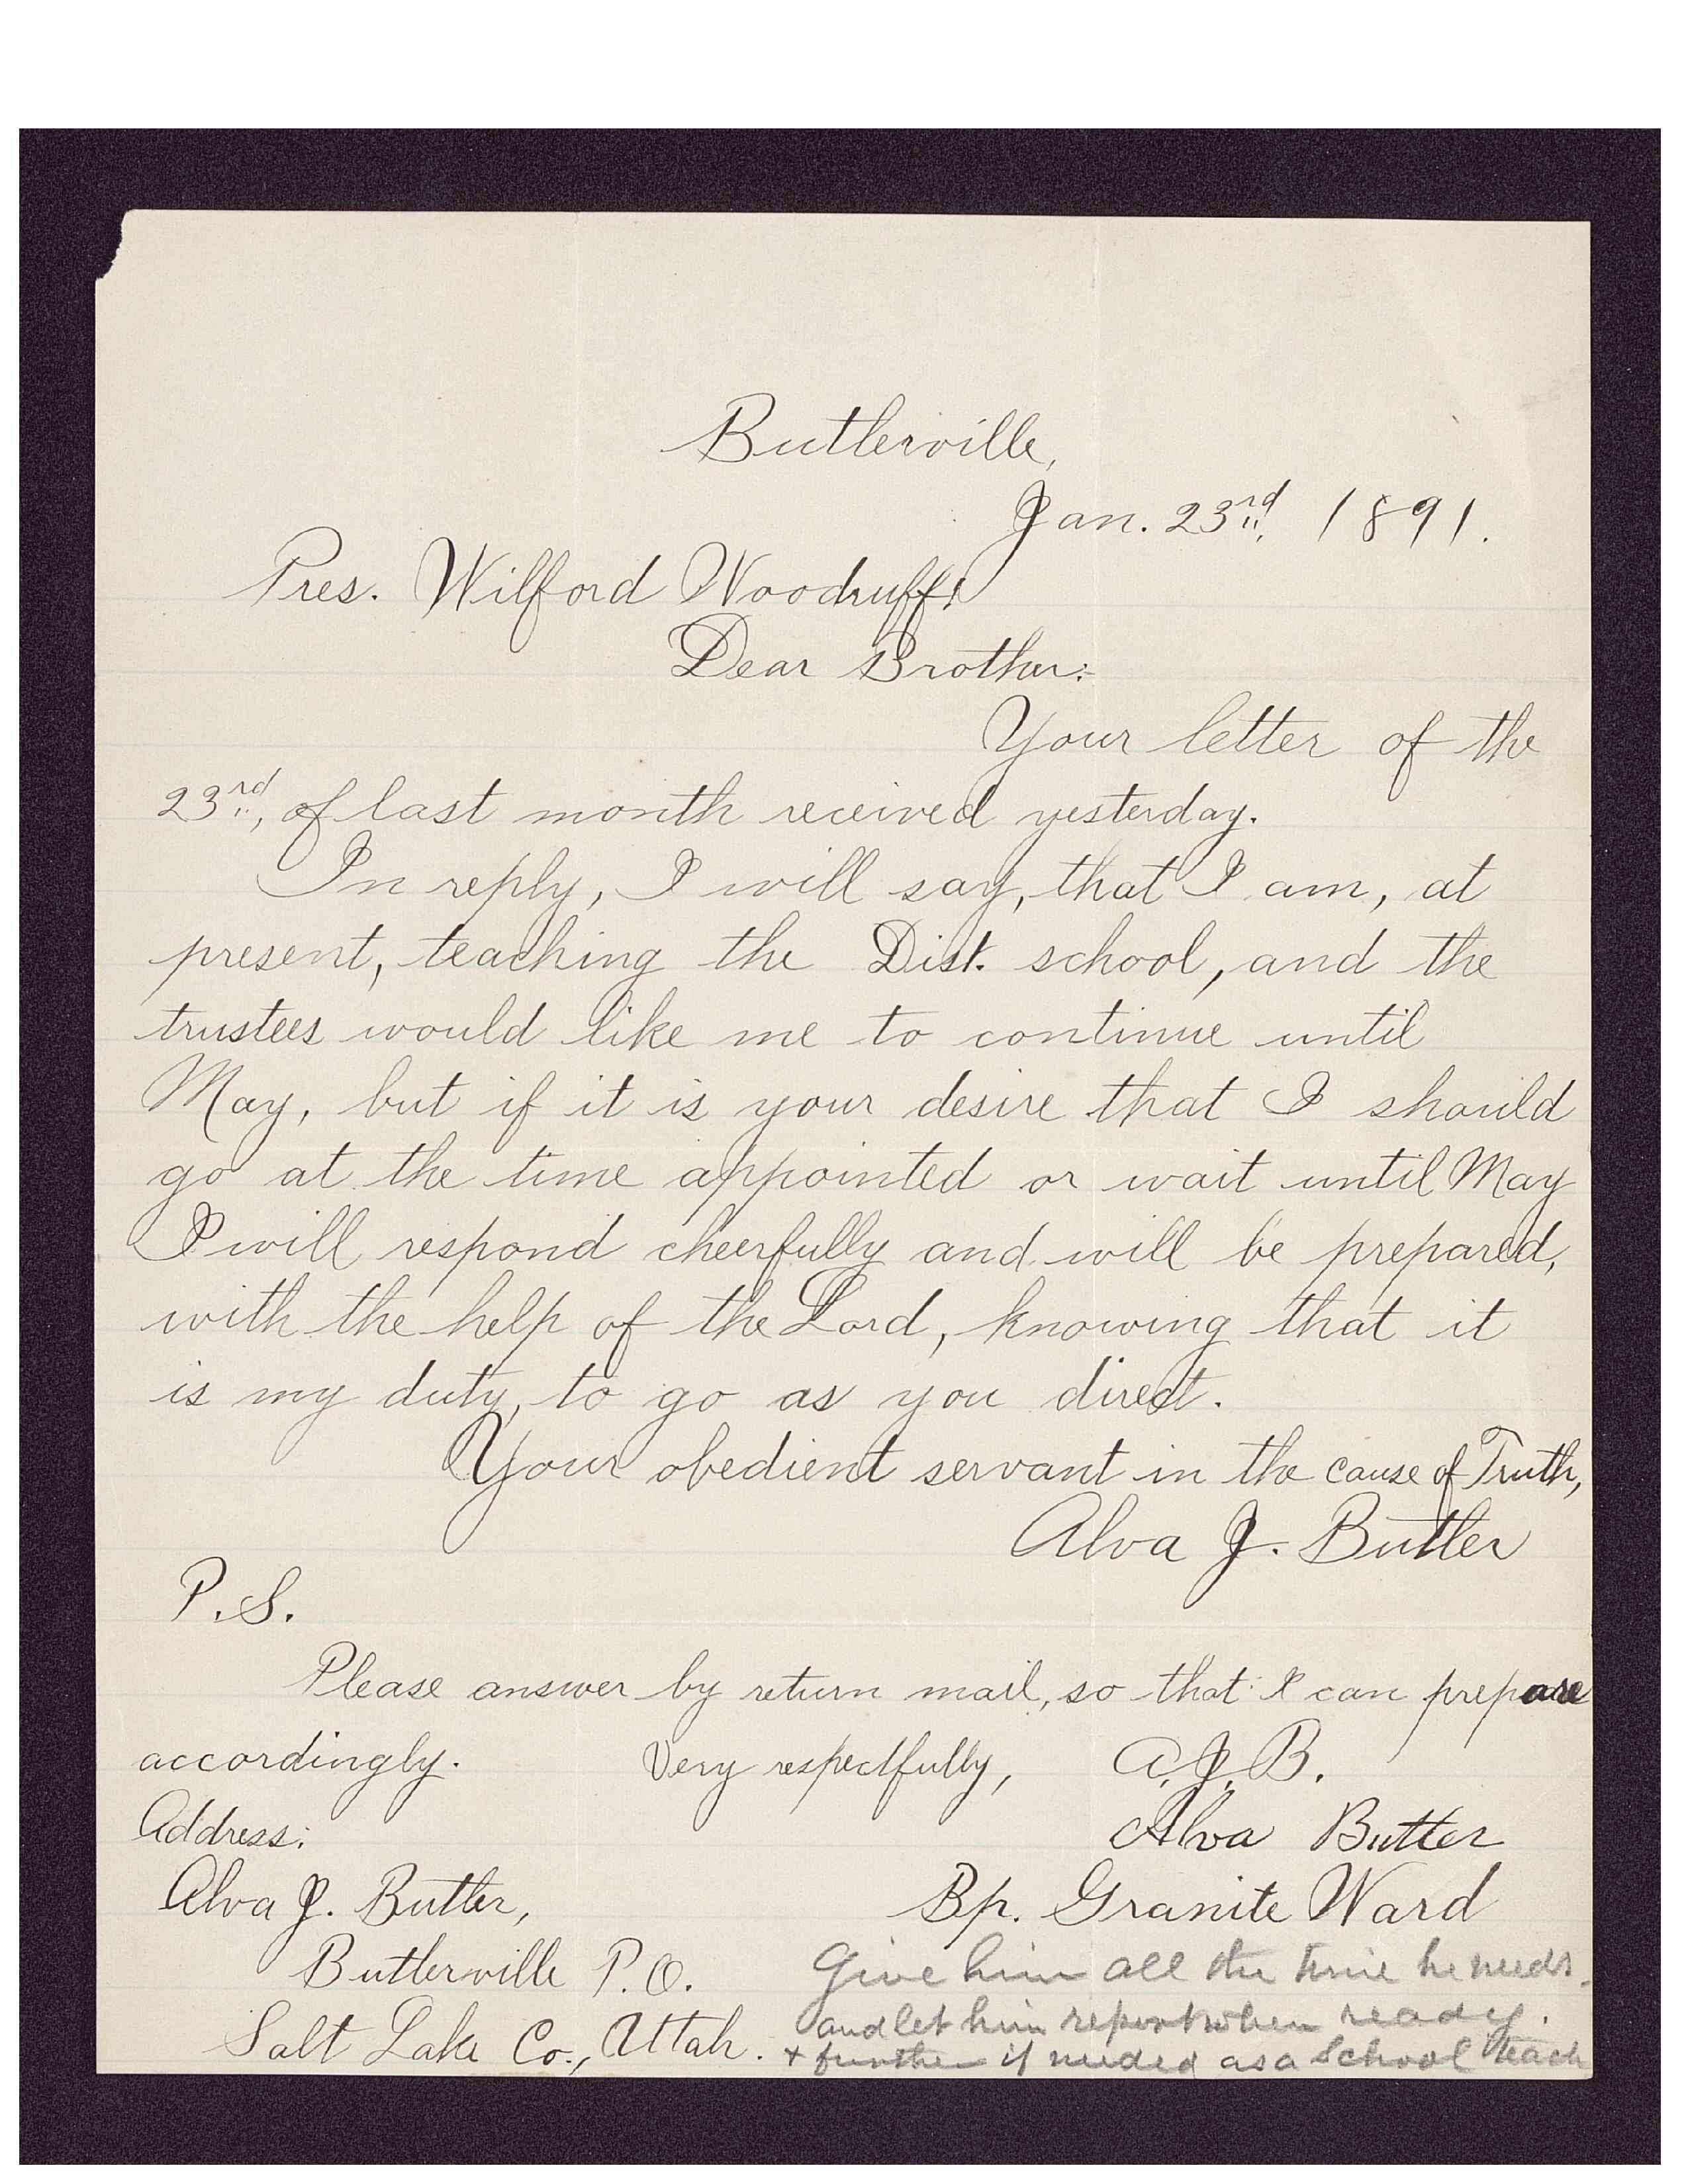 Butlerville,
Jan. 23rd, 1891.
Pres. Wilford Woodruff;
Dear Brother:
Your letter of the
23rd, of last month received yesterday.
In reply, I will say, that I am, at
present, teaching the Dist. school, and the
trustees would like me to continue until
May, but if it is your desire that I should
go at the time appointed or wait until May
I will respond cheerfully and will be prepared,
with the help of the Lord, knowing that it
is my duty, to go as you direct.
Your obedient servant in the cause of Truth,
Alva J. Butler
P.S.
Please answer by return mail, so that I can prepare
accordingly. Very respectfully, A.J.B.
Address:
Alva Butler
Alva J. Butler,
Bp. Granite Ward
Butlerville P.O.
Give him all the time he needs.
Salt Lake Co., Utah.
and let him report when ready.
+ further if needed as a School teach